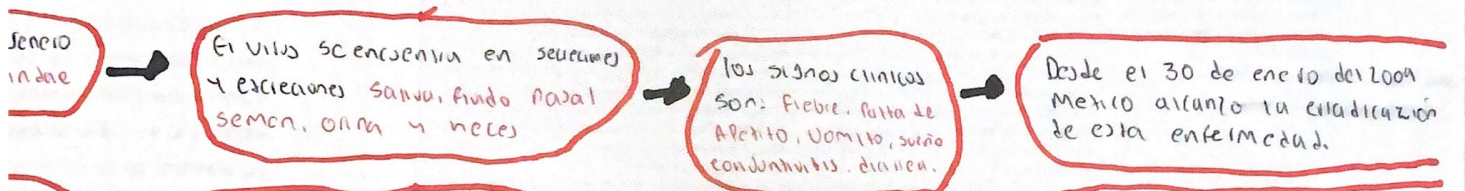 género
indae
El virus se encuentra en secreciones
y excreciones saliva, fluido nasal
semen, orina y heces
los signos clinicos
son: fiebre, falta de
Apetito, vomito, sueño
conjuntivitis, diarrea.
Desde el 30 de enero del 2009
Mexico alcanzo la erradicazión
de esta enfermedad.